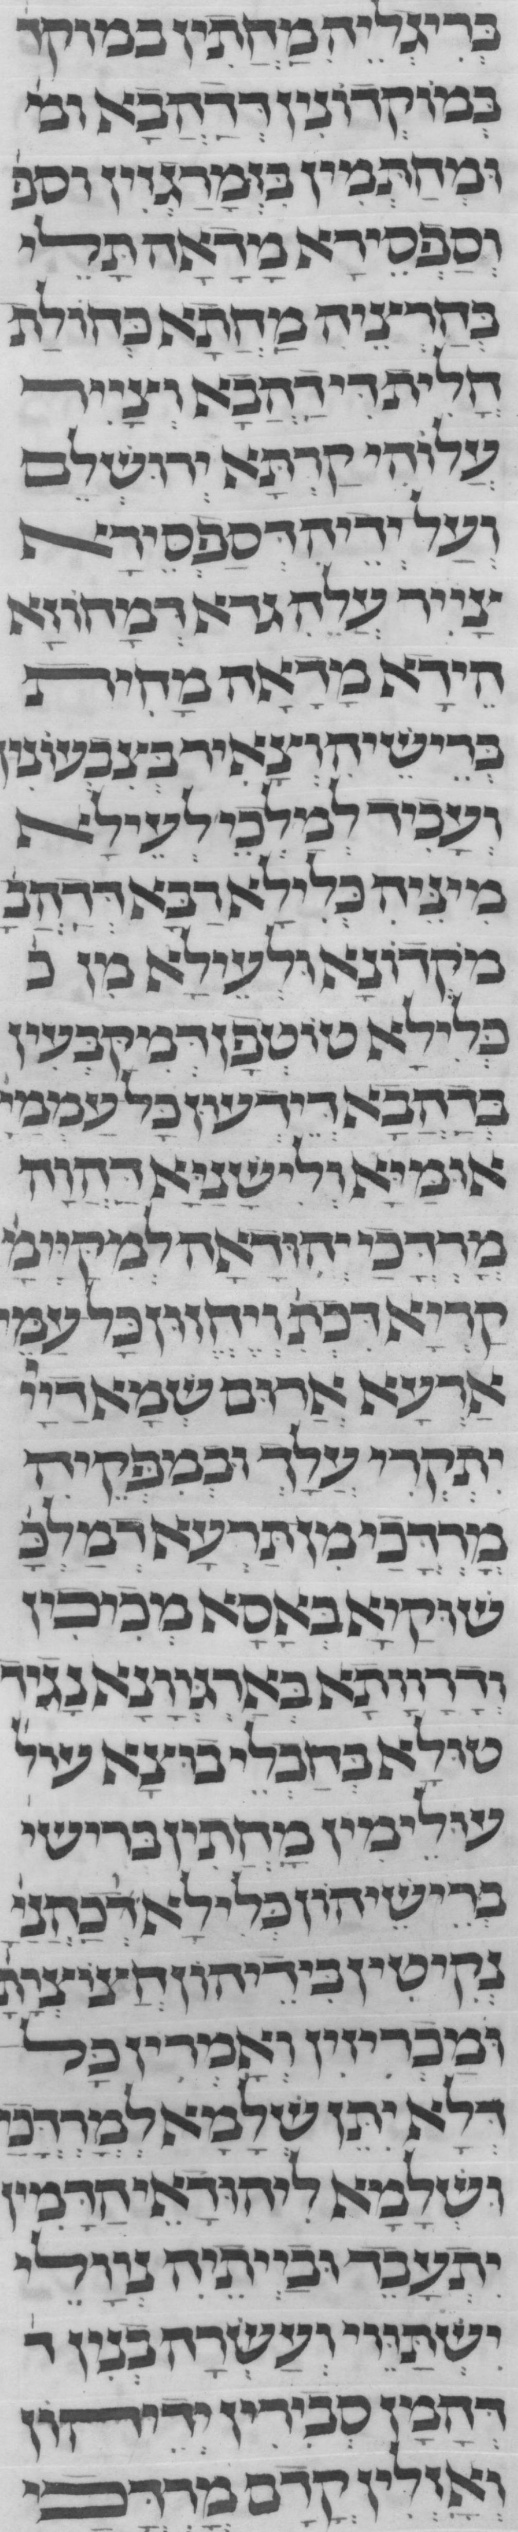 בְּרִיגְלֵיהּ מַחֲתִין במוקד
בְּמוֹקְדוֹנִין דְּדַהֲבָא ומ
וּמְחַתְּמִין בְּזְמָרַגְוִין וספ
וְסַפְסֵירָא מָדָאָה תָּלֵי
בְּחַרְצֵיהּ מַחֲתָא כְּחוּלַת
חֲלִית דִּידַהֲבָא וְצַיִיר
עֲלוֹהִי קַרְתָּא יְרוּשְׁלֵם
וְעַל יְדֵיהּ דְּסַפְסֵירָא
צָיִיר עֲלֵהּ גדא דְּמָחוֹזָא
הֵידָא מָדָאָה מָחִית
בְּרֵישֵׁיהּ וְצָאִיר בְּצִבְעוֹנִין
וְעָבִיד לְמַלְכֵי לְעֵילָא
מִינֵּיהּ כְּלִילָא רַבָּא דְּדַהֲבָ
מֹקְדוֹנָא וּלְעֵילָא מִן כ
כְּלִילָא טוֹטְפָן דְּמִקַּבְּעִין
בְּדַהֲבָא דְּיִדְעוּן כָּל עַמְמֵי
אוּמַּיָּא וְלִישָׁנַיָּא דַּהֲוָה
מָרְדֳּכַי יְהוּדָאָה לְמִקַּיְּימָ
קַרְיָא דִּכְתִ וְיֶחֱזוּן כָּל עַמֵּי
אַרְעָא אֲרוּם שְׁמָא דַיְיָ
יִתְקְרִי עֲלָךְ וּבְמִפְּקֵיהּ
מָרְדֳּכַי מִן תַּרְעָא דְמַלְכָּ
שׁוּקַיָּא בְּאָסָא מְכִיכִין
וְדָרָוָותָא בְּאַרְגְּוָונָא נָגִיד
טוּלָא בְּחַבְלֵי בוּצָא עיל
עוּלֵימִין מַחֲתִין ברישי
בְּרֵישֵׁיהוֹן כְּלִילָא דְכַהֲנֵי
נְקִיטִין בִּידֵיהוֹן חֲצוֹצְיָת
וּמַכְרִיזִין וְאָמְרִין כָּל
דְּלָא יִתֵּן שְׁלָמָא לְמָרְדֳּכַי
וּשְׁלָמָא לִיהוּדָאֵי הַדָּמִין
יִתְעֲבֵד וּבַיְיתֵיהּ נְוָולֵי
יִשְׁתַּוֵּוי וְעַשְׂרָה בְּנִין ד
דְּהָמָן סְבִירִין יְדֵיהוֹן
וְאָזְלִין קֳדָם מָרְדֳּכַי